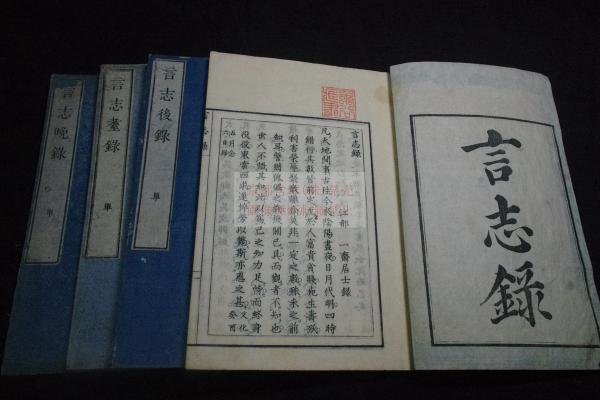 言志錄
言志錄
江都 一齋居士錄
凡天地間事古往今來陰陽晝夜日月代明四時
錯行其數皆前定至於人富貴貧賤死生壽殀
利害榮辱聚散離合莫非一定之數殊未之前
知耳譬猶傀儡之戲機關已具而觀者不知也
世人不悟其如此以爲己之知力足恃而終身
役役東索西求遂悴勞以斃斯亦惑之甚 文化癸酉
五月念
六日錄
言志錄
言志後錄
單
言志耋錄
單
言志晚錄
單